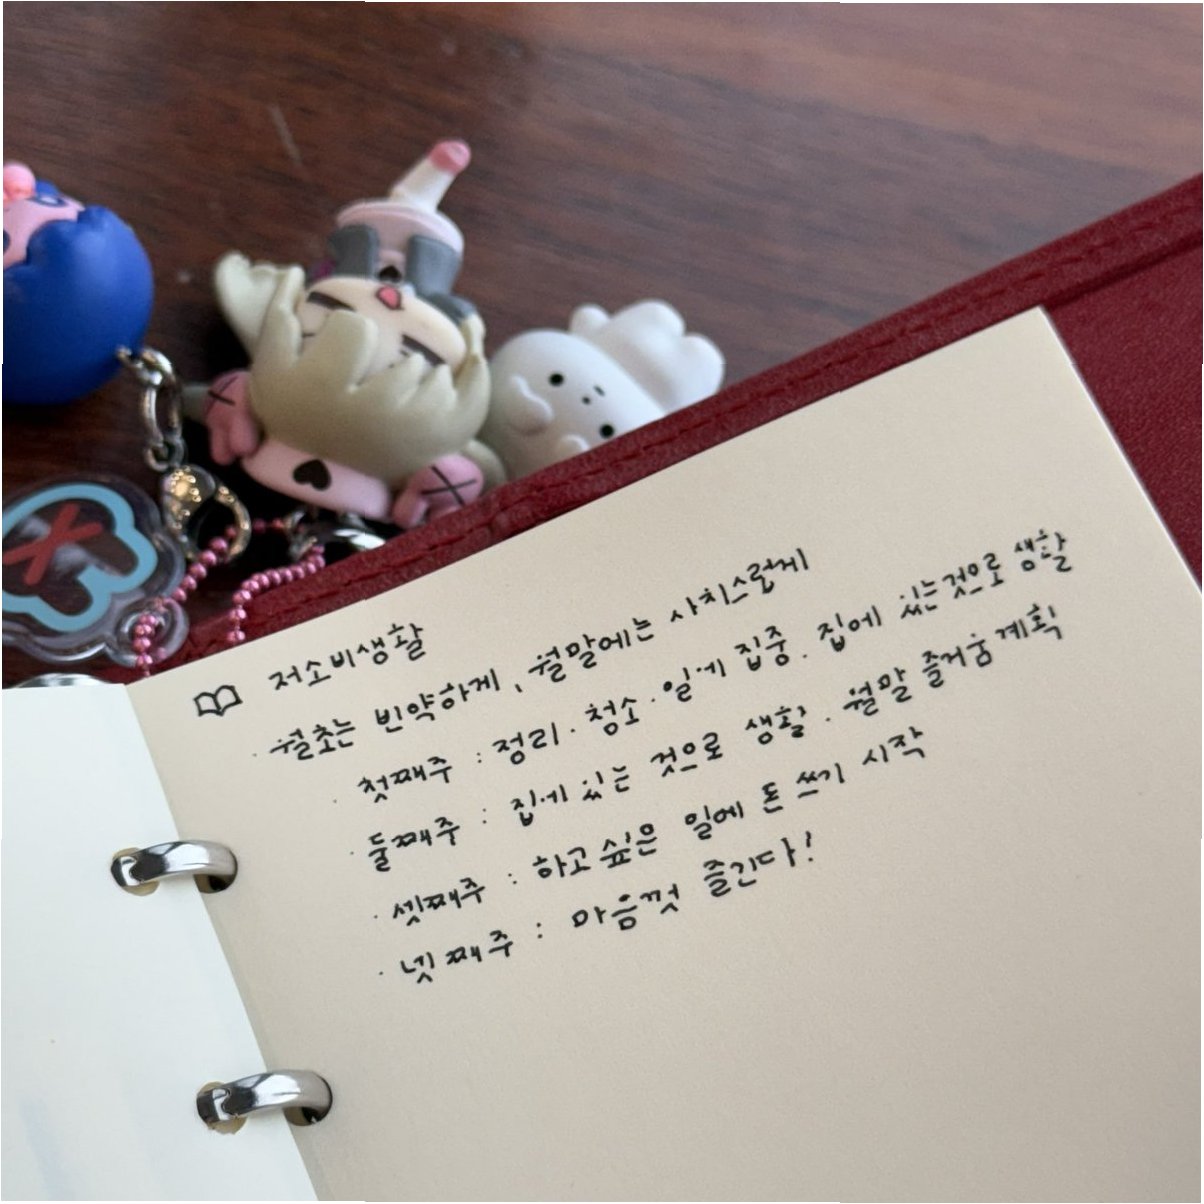 저소비생활
· 월초는 빈약하게, 월말에는 사치스럽게
· 첫째주 : 정리 · 청소 · 일에 집중. 집에 있는것으로 생활
· 둘째주 : 집에 있는 것으로 생활 . 월말 즐거움 계획
· 셋째주 : 하고싶은 일에 돈 쓰기 시작
· 넷째주 : 마음껏 즐긴다!